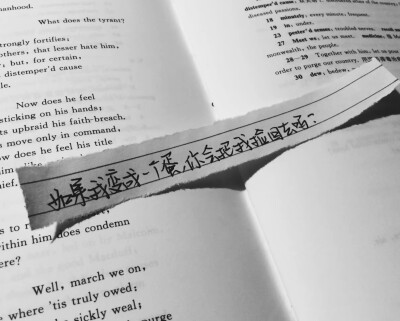 manhood.
What does the tyrant?
strongly fortifies;
others, that lesser hate him,
; but, for certain,
distemper'd cause
le.
Now does he feel
sticking on his hands;
ts upbraid his faith-breach,
move only in command,
ow does he feel his title
him
hief.
如果我变成一个蛋,你会把我捡回去
s to r
within him does condemn
ere?
Well, march we on,
where 'tis truly owed:
he sickly weal;
purge
distemper'd cause,
diseased passions.
18 minutely, every minute, frequent.
19 in, under.
23 pester'd senses, troubled nerves.
27 Meet we, let us meet.
monwealth, the people.
28—29 Together with him, let us
order to purge our country.
30 dew, bedew,